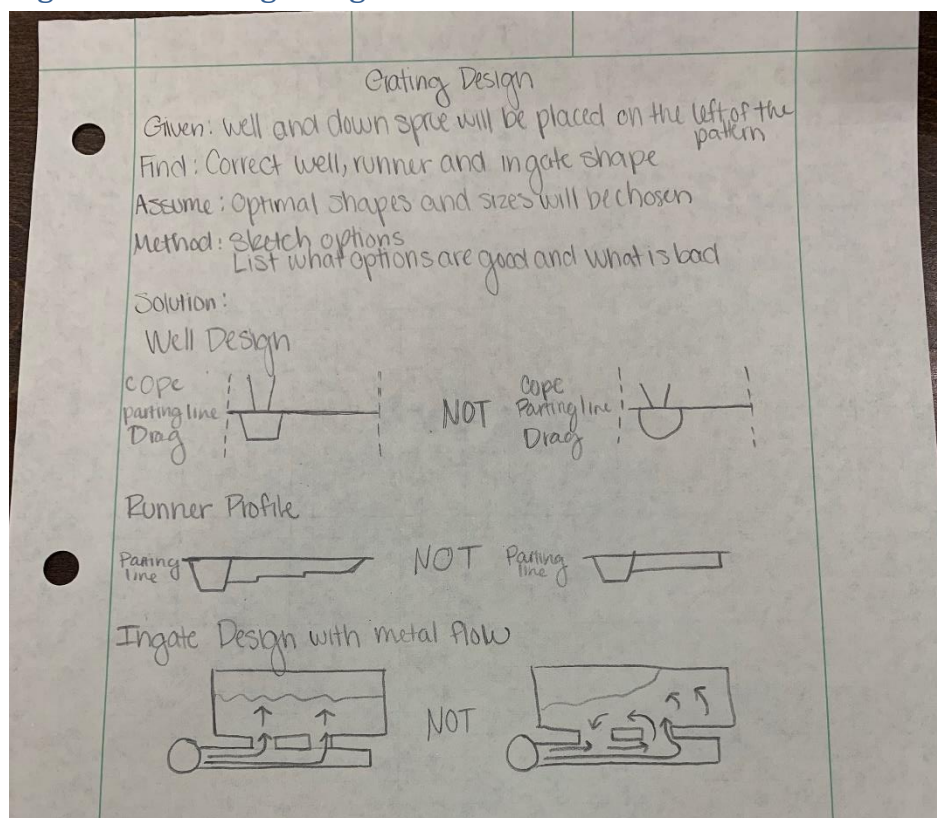 Gating Design
Given: Well and down sprue will be placed on the left of the
pattern
Find: Correct well, runner and ingate shape
Assume: Optimal shapes and sizes will be chosen
Method: Sketch options
List what options are good and what is bad
Solution:
Well Design
COPE
parting line
Drag
NOT
Cope
Parting line
Drag
Runner Profile
Parting
line
NOT
Parting
line
Ingate Design with metal flow
NOT